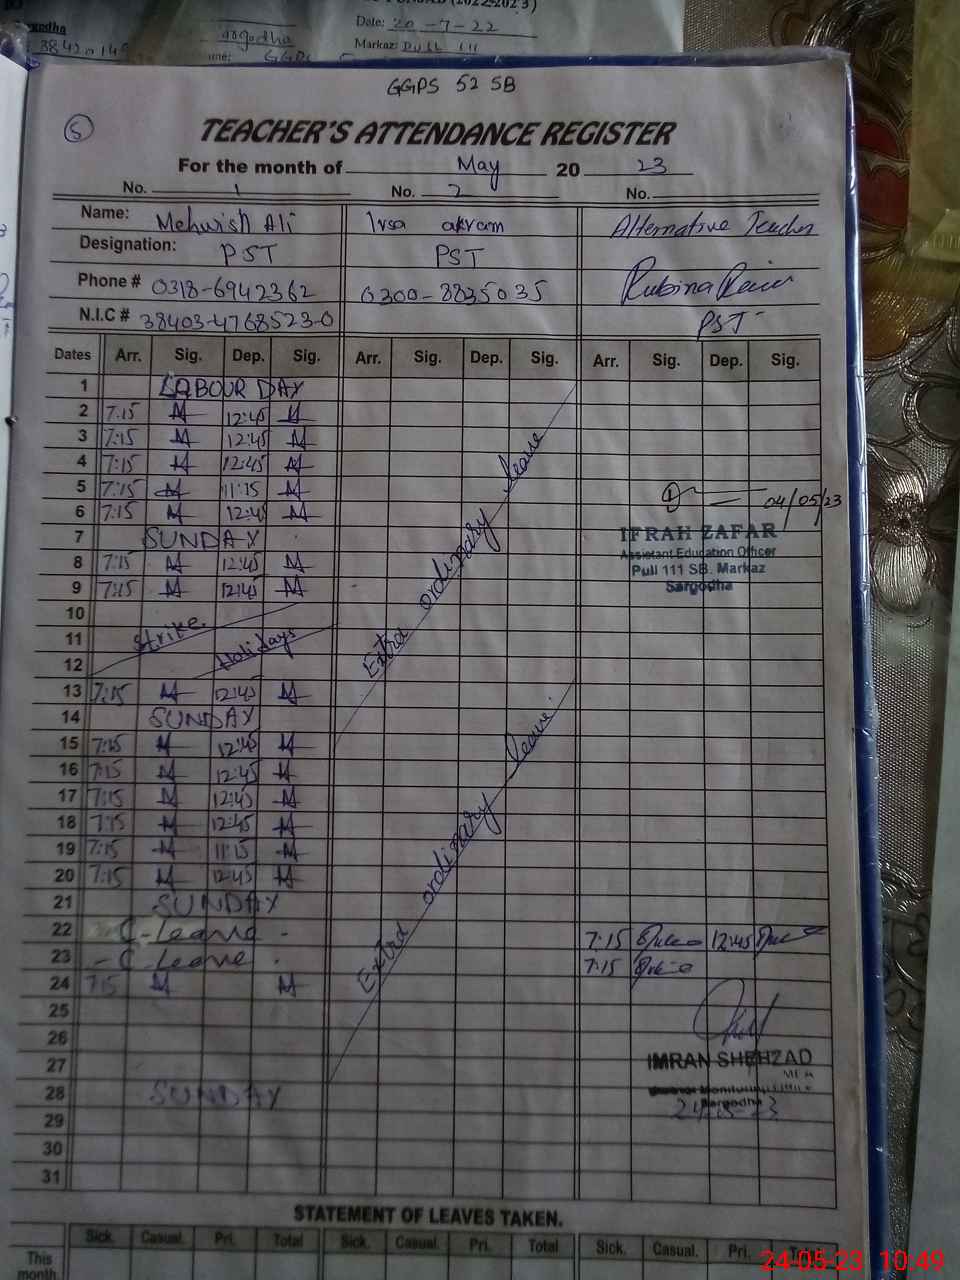 (2022-2023)
Date: 20-7-22
Markaz: Pull 111
GGPS 52 SB
5
TEACHER'S ATTENDANCE REGISTER
For the month of May 20 23
No. 1 No. 2 No.
Name: Mehwish Ali Irsa akram Alternative Teacher
Designation: PST PST
Phone # 0318-6942362 0300-8835035 Rubina
N.I.C # 38403-4768523-0 PST
Dates Arr. Sig. Dep. Sig. Arr. Sig. Dep. Sig. Arr. Sig. Dep. Sig.
1 LABOUR DAY
2 7:15 M 12:45 M
3 7:15 M 12:45 M
4 7:15 M 12:45 M
5 7:15 M 11:15 M
6 7:15 M 12:45 M
7 SUNDAY
8 7:15 M 12:45 M
9 7:15 M 12:45 M
10
11 Strike
12 Holidays
13 7:15 M 12:45 M
14 SUNDAY
15 7:15 M 12:45 M
16 7:15 M 12:45 M
17 7:15 M 12:45 M
18 7:15 M 12:45 M
19 7:15 M 11:15 M
20 7:15 M 12:45 M
21 SUNDAY
22 C-Leave - 7:15 12:45
23 - C-Leave - 7:15
24 7:15 M M
25
26
27
28 SUNDAY
29
30
31
Extra ordinary leave
Extra ordinary leave
04/05/23
IFRAH ZAFAR
Assistant Education Officer
Pull 111 SB. Markaz
Sargodha
IMRAN SHEHZAD
MEA
Sargodha
STATEMENT OF LEAVES TAKEN.
Sick. Casual. Pri. Total Sick. Casual. Pri. Total Sick. Casual. Pri. Total
This
month.
24-05-23 10:49